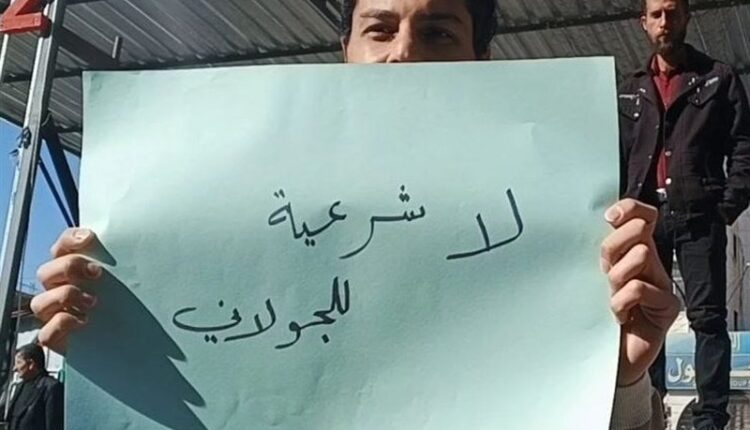 لا شرعية
للجولاني